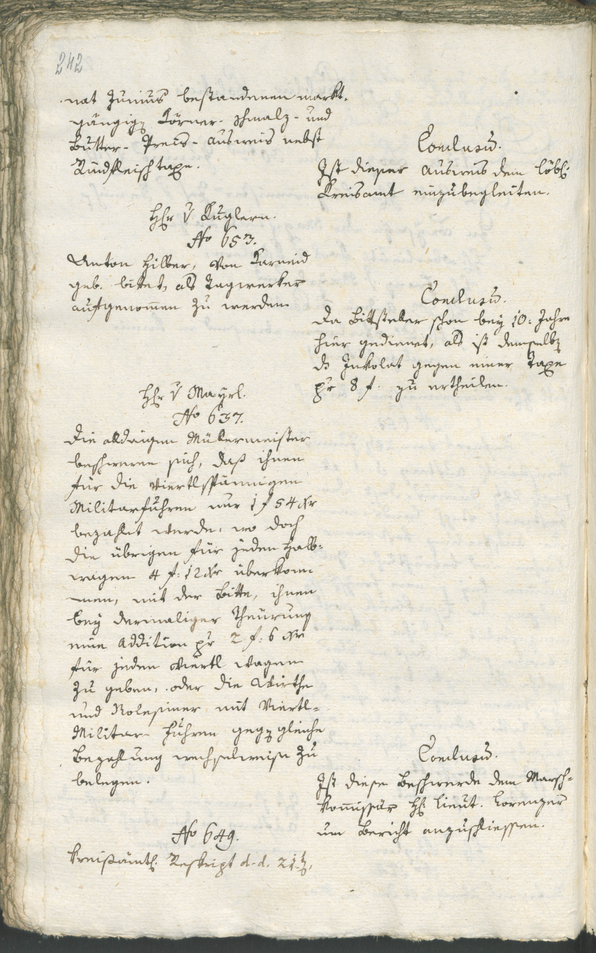 242
nat Junius bestandenen markt-
gängigen Körner- Schmalz- und
Butter- Preis- Ausweis nebst
Rindfleischtaxe.
Conclusum.
Ist dieser Ausweis dem löbl:
Kreisamt einzubegleiten.
Hr. v Kuglern.
No 653.
Anton Hilber, von Karneid
geb. bittet als Tagwerker
aufgenommen zu werden
Conclusum.
Da Bittsteller schon bey 10: Jahre
hier gedienet, als ist demselben
ds Inkolat gegen einer Taxe
pr 8 f. zu ertheilen.
Hr. v Mayrl.
No 637.
Die alldasigen Müllermeister
beschweren sich, daß ihnen
für die viertlspännigen
Militarfuhren nur 1 f 54 Xr
bezahlt werde, wo doch
die übrigen für jeden halb-
wagen 4 f: 12 Xr überkom-
men, mit der Bitte, ihnen
bey dermaliger Theurung
eine Addition pr 2 f: 6 Xr
für jeden viertl Wagen
zu geben, oder die Wirthe
und Rolesiner mit Viertl-
Militar- Fuhren gegen gleiche
Bezahlung wechselweise zu
belegen.
Conclusum.
Ist diese Beschwerde dem Marsch-
Kommissär Hr. Lieut. Lorenzer
um Bericht anzuschliessen.
No 649.
Kreisämtl. Reskript d. d.